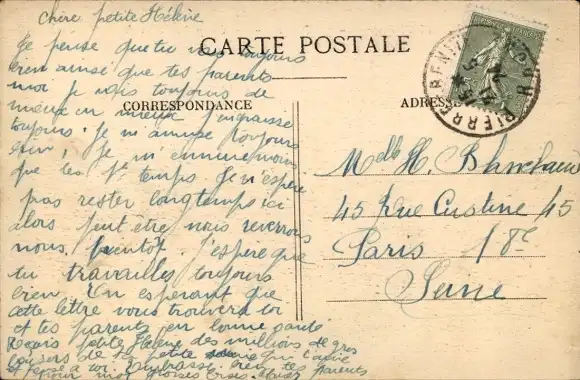 Chère petite Hélène
Je pense que tu vas toujours
bien ainsi que tes parents
moi je vais toujours de
mieux en mieux j'engraisse
toujours. Je m'amuse toujours
bien, Je m'ennuie moins
que les 1er temps. Je n'espère
pas rester longtemps ici
alors peut être nous reverrons
nous bientôt. J'espère que
tu travailles toujours
bien. En esperant que
cette lettre vous trouvera toi
et tes parents en bonne santé
Reçois petite Hélène des millions de gros
baisers de ta petite qui t'aime
et pense a toi. Embrasse bien tes parents
pour moi grosses bises
CARTE POSTALE
CORRESPONDANCE
ADRESSE
PIERRE-BENITE RHONE
Melle H. Blanchard
45 Rue Custine 45
Paris 18e
Seine